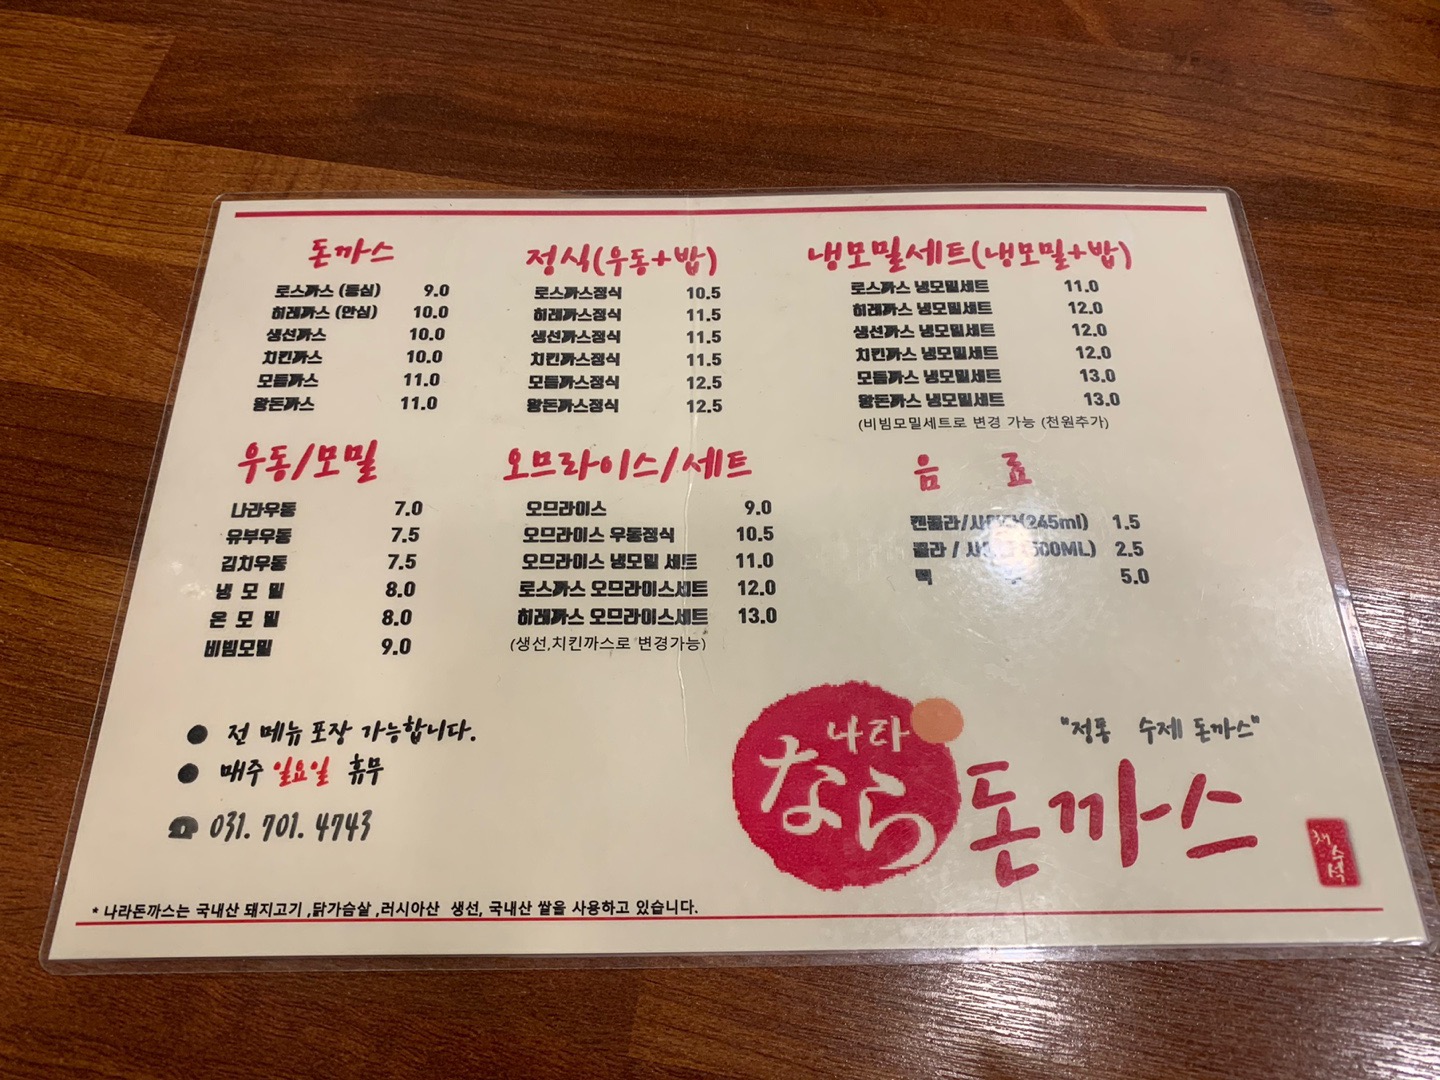 돈까스
로스까스 (등심) 9.0
히레까스 (안심) 10.0
생선까스 10.0
치킨까스 10.0
모듬까스 11.0
왕돈까스 11.0
정식(우동+밥)
로스까스정식 10.5
히레까스정식 11.5
생선까스정식 11.5
치킨까스정식 11.5
모듬까스정식 12.5
왕돈까스정식 12.5
냉모밀세트(냉모밀+밥)
로스까스 냉모밀세트 11.0
히레까스 냉모밀세트 12.0
생선까스 냉모밀세트 12.0
치킨까스 냉모밀세트 12.0
모듬까스 냉모밀세트 13.0
왕돈까스 냉모밀세트 13.0
(비빔모밀세트로 변경 가능 (천원추가)
우동/모밀
나라우동 7.0
유부우동 7.5
김치우동 7.5
냉 모 밀 8.0
온 모 밀 8.0
비빔모밀 9.0
오므라이스/세트
오므라이스 9.0
오므라이스 우동정식 10.5
오므라이스 냉모밀 세트 11.0
로스까스 오므라이스세트 12.0
히레까스 오므라이스세트 13.0
(생선,치킨까스로 변경가능)
음 료
캔콜라/사이다(245ml) 1.5
콜라 / 사이다 (500ML) 2.5
맥 주 5.0
● 전 메뉴 포장 가능합니다.
● 매주 일요일 휴무
☎ 031. 701. 4743
나라
なら
"정통 수제 돈까스"
돈까스
채수석
* 나라돈까스는 국내산 돼지고기 ,닭가슴살 ,러시아산 생선, 국내산 쌀을 사용하고 있습니다.